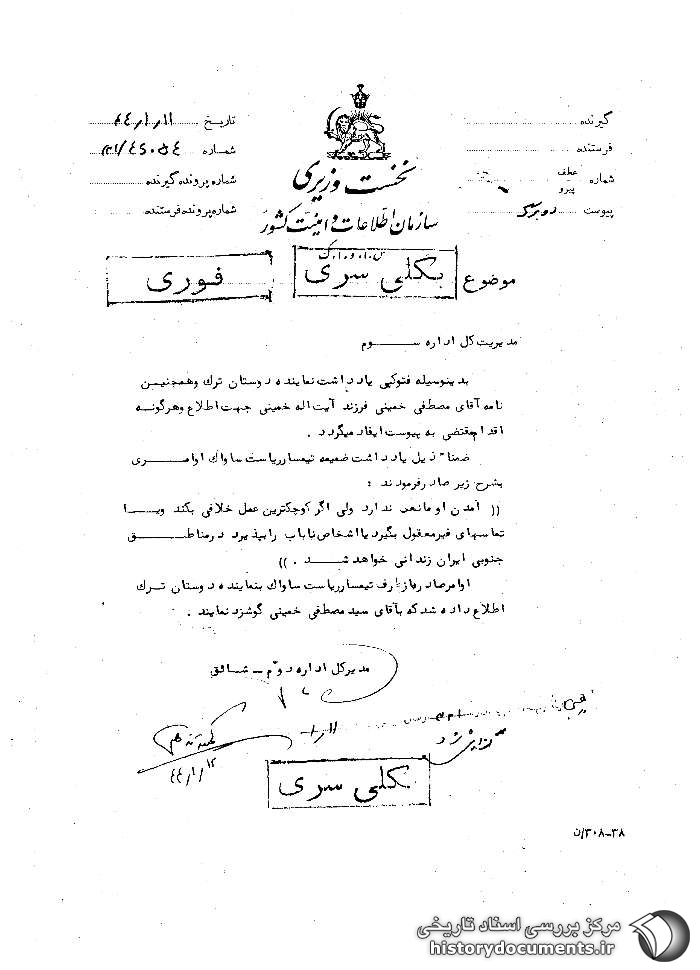 گیرنده
فرستنده
شماره عطف پیرو
پیوست دو برگ
نخست وزیری
سازمان اطلاعات و امنیت کشور
تاریخ ۴۴/۱/۱۱
شماره
شماره پرونده گیرنده
شماره پرونده فرستنده
موضوع
بکلی سری
فوری
مدیریت کل اداره ســـوم
بدینوسیله فتوکپی یادداشت نماینده دوستان ترك وهمچنیـن
نامه آقای مصطفی خمینی فرزند آیت اله خمینی جهت اطلاع وهرگونـه
اقدام مقتضی به پیوست ایفاد میگردد .
ضمنا" ذیل یادداشت ضمیمه تیمسارریاست ساواك اوامـــری
بشرح زیر صادرفرمودند :
(( آمدن او مانعی ندارد ولی اگر کوچکترین عمل خلافی بکند ویـــا
تماسهای غیرمعقول بگیرد یا اشخاص ناباب را بپذیرد درمناطـــق
جنوبی ایران زندانی خواهد شـــد . ))
اوامرصادره از طرف تیمسارریاست ساواك بنماینده دوستان تـرك
اطلاع داده شد که بآقای سید مصطفی خمینی گوشزد نمایند .
مدیرکل اداره دوّم ـ شـالـق
۴۴/۱/۱۲
بکلی سری
۳۰۸-۳۸/ن
مرکز بررسی اسناد تاریخی
historydocuments.ir